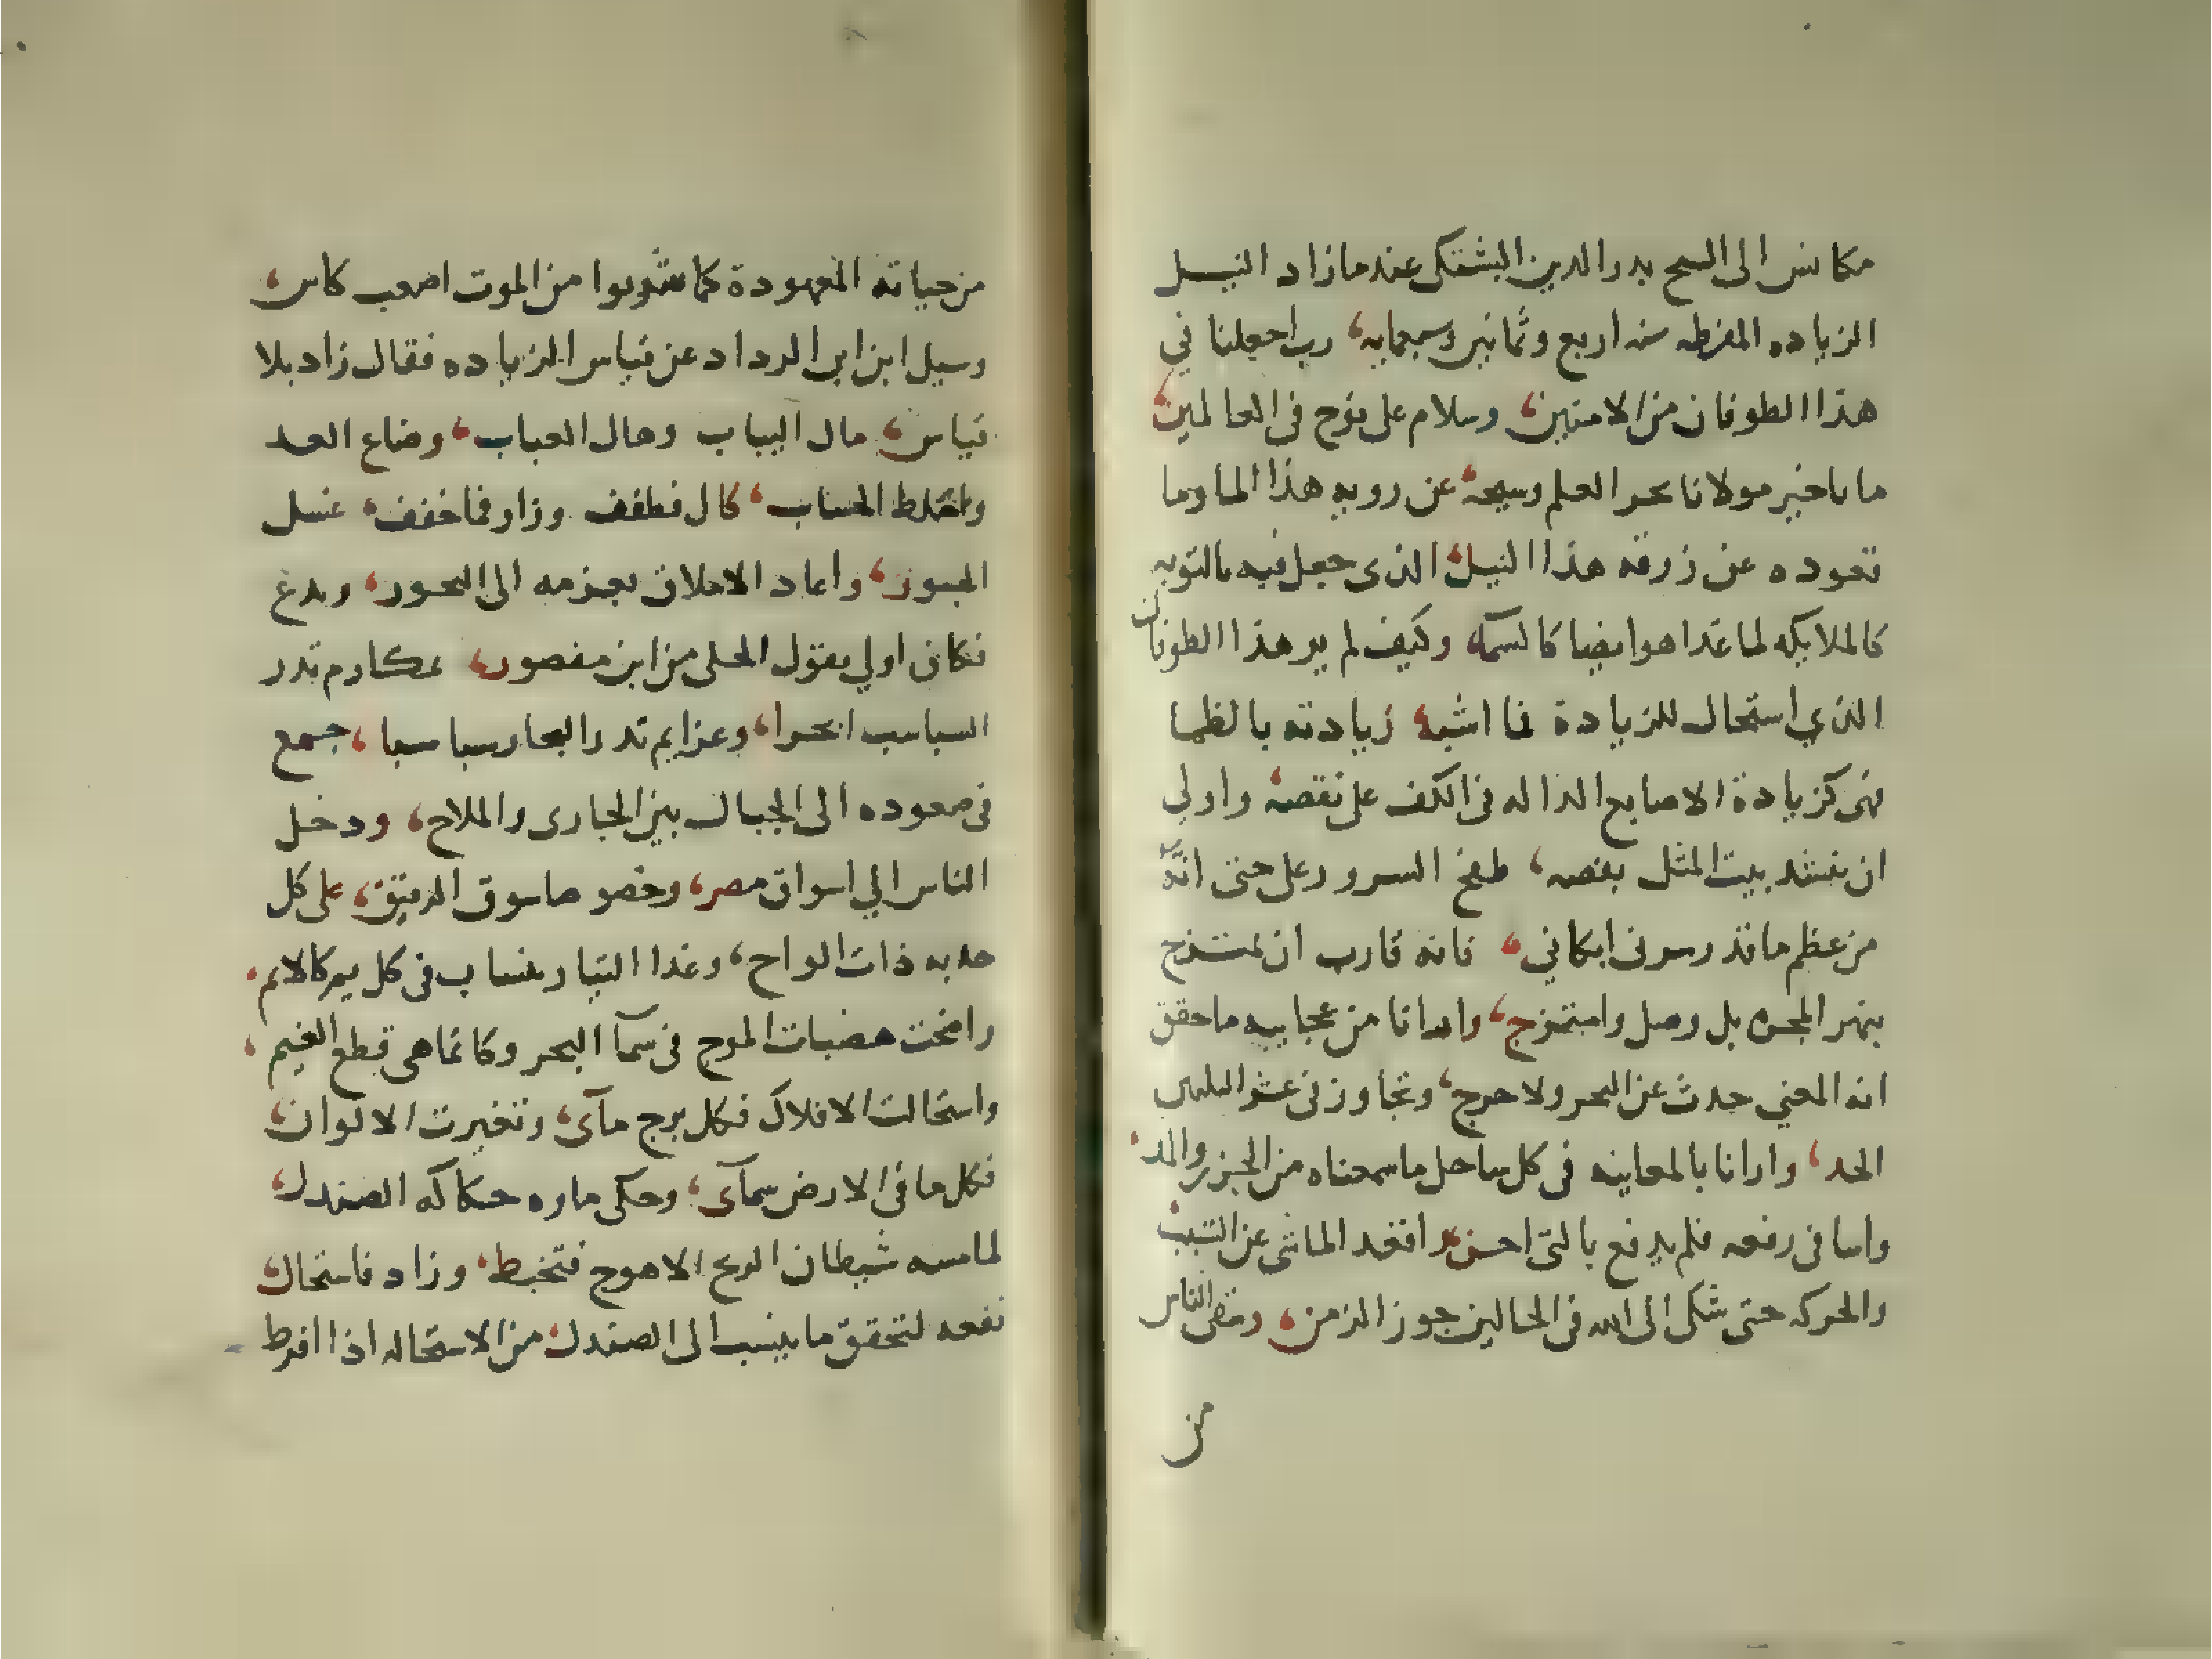 مكانس الى الشيخ بدر الدين البشتكي عندما زاد النيــل
الزياده المفرطه سنه اربع وثمانين وسبعمايه، رب اجعلنا في
هذا الطوفان من الامنين، وسلام على نوح فى العالمين،
ما ياخير مولانا بحر العلم وشيخه، عن رويه هذا الما وما
تعوده عن زرقه هذا النيل، الذى جعل فيه بالتوبه
كالملايكه لما غدا هو ايضا كالسما، وكيف لم ير هذا الطوفان
الذي استحال للزيادة فما اشبه، زيادته بالظما
فهى كزيادة الاصابع الداله فى الكف على نقصه، واولي
ان ينشد بيت المثل بفصه، طفح السرور على حتى انّه
من عظم ما قد سرنى ابكاني، فانه قارب ان يمتــزج
بنهر المجره بل وصل وامتزج، وارانا من عجايبه ما حقق
انه المعني حدث عن البحر ولا حرج، وتجاوز فى عشر الثلثين
الحد، وارانا بالمعاينه فى كل ساحل ما سمعناه من الجزر والمد،
واسا فى رفعه فلم يدفع بالتى احسن، واقعد الماشى عن التسبب
والحركه حتى شكى الى الله فى الحالين جور الزمن، وسقى الناس
من
من حياته المعهودة كما شربوا من الموت اصعب كاس،
وسيل ابن ابى الرداد عن قياس الزياده فقال زاد بلا
قياس، مال اليباب وهال العباب، وضاع العد
واختلط الحساب، كال فطفف وزار فما خفف، غسل
الجسور، واعاد الاملاق بعزمه الى البحور، وبدع
فكان اولي بقول الحلى من ابن منصور، بمكارم تذر
السباسب ابحرا، وعزايم تذر البحار سباسبا، جمع
فى صعوده الى الجبال بين الحارى والملاح، ودخل
الناس الي اسواق مصر، وخصوصا سوق الدقيق، على كل
حدبه ذات الواح، وغدا التيار ينساب فى كل يم كالايم،
واضحت هضبات الموج فى سما البحر وكانما هى قطع الغيم،
واستحالت الافلاك فكل برج مآى، وتغيرت الالوان،
فكل ما فى الارض سمآى، وحكى ماوه حكاكه الصندل،
لما مسه شيطان الريح الاهوج فتخبط، وزاد فاستحال،
نفعه لتحقق ما ينسب الى الصندل، من الاستحاله اذا افرط